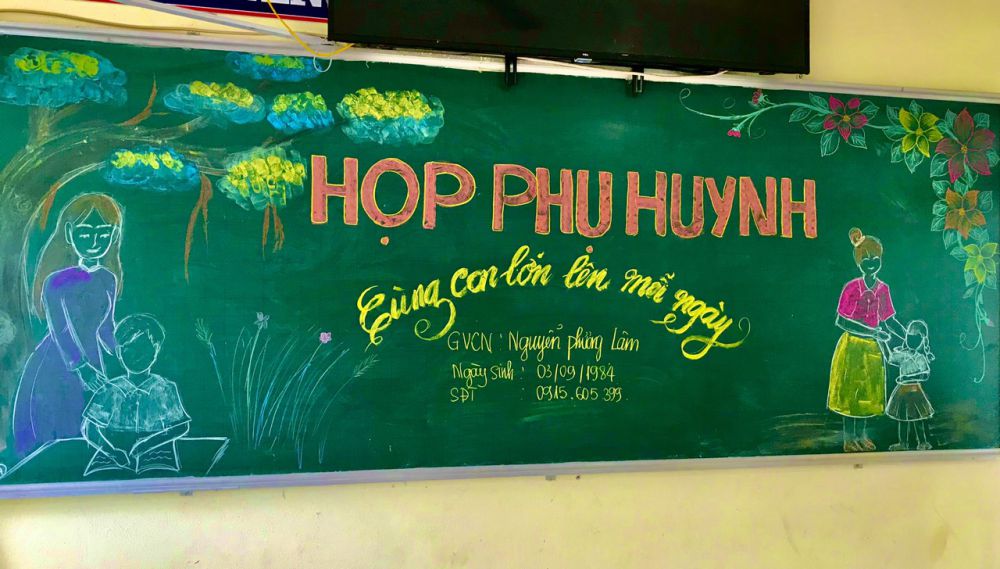 HỌP PHỤ HUYNH
Cùng con lớn lên mỗi ngày
GVCN : Nguyễn phương Lâm
Ngày sinh : 03/09/1984
SĐT : 0915.605 399.